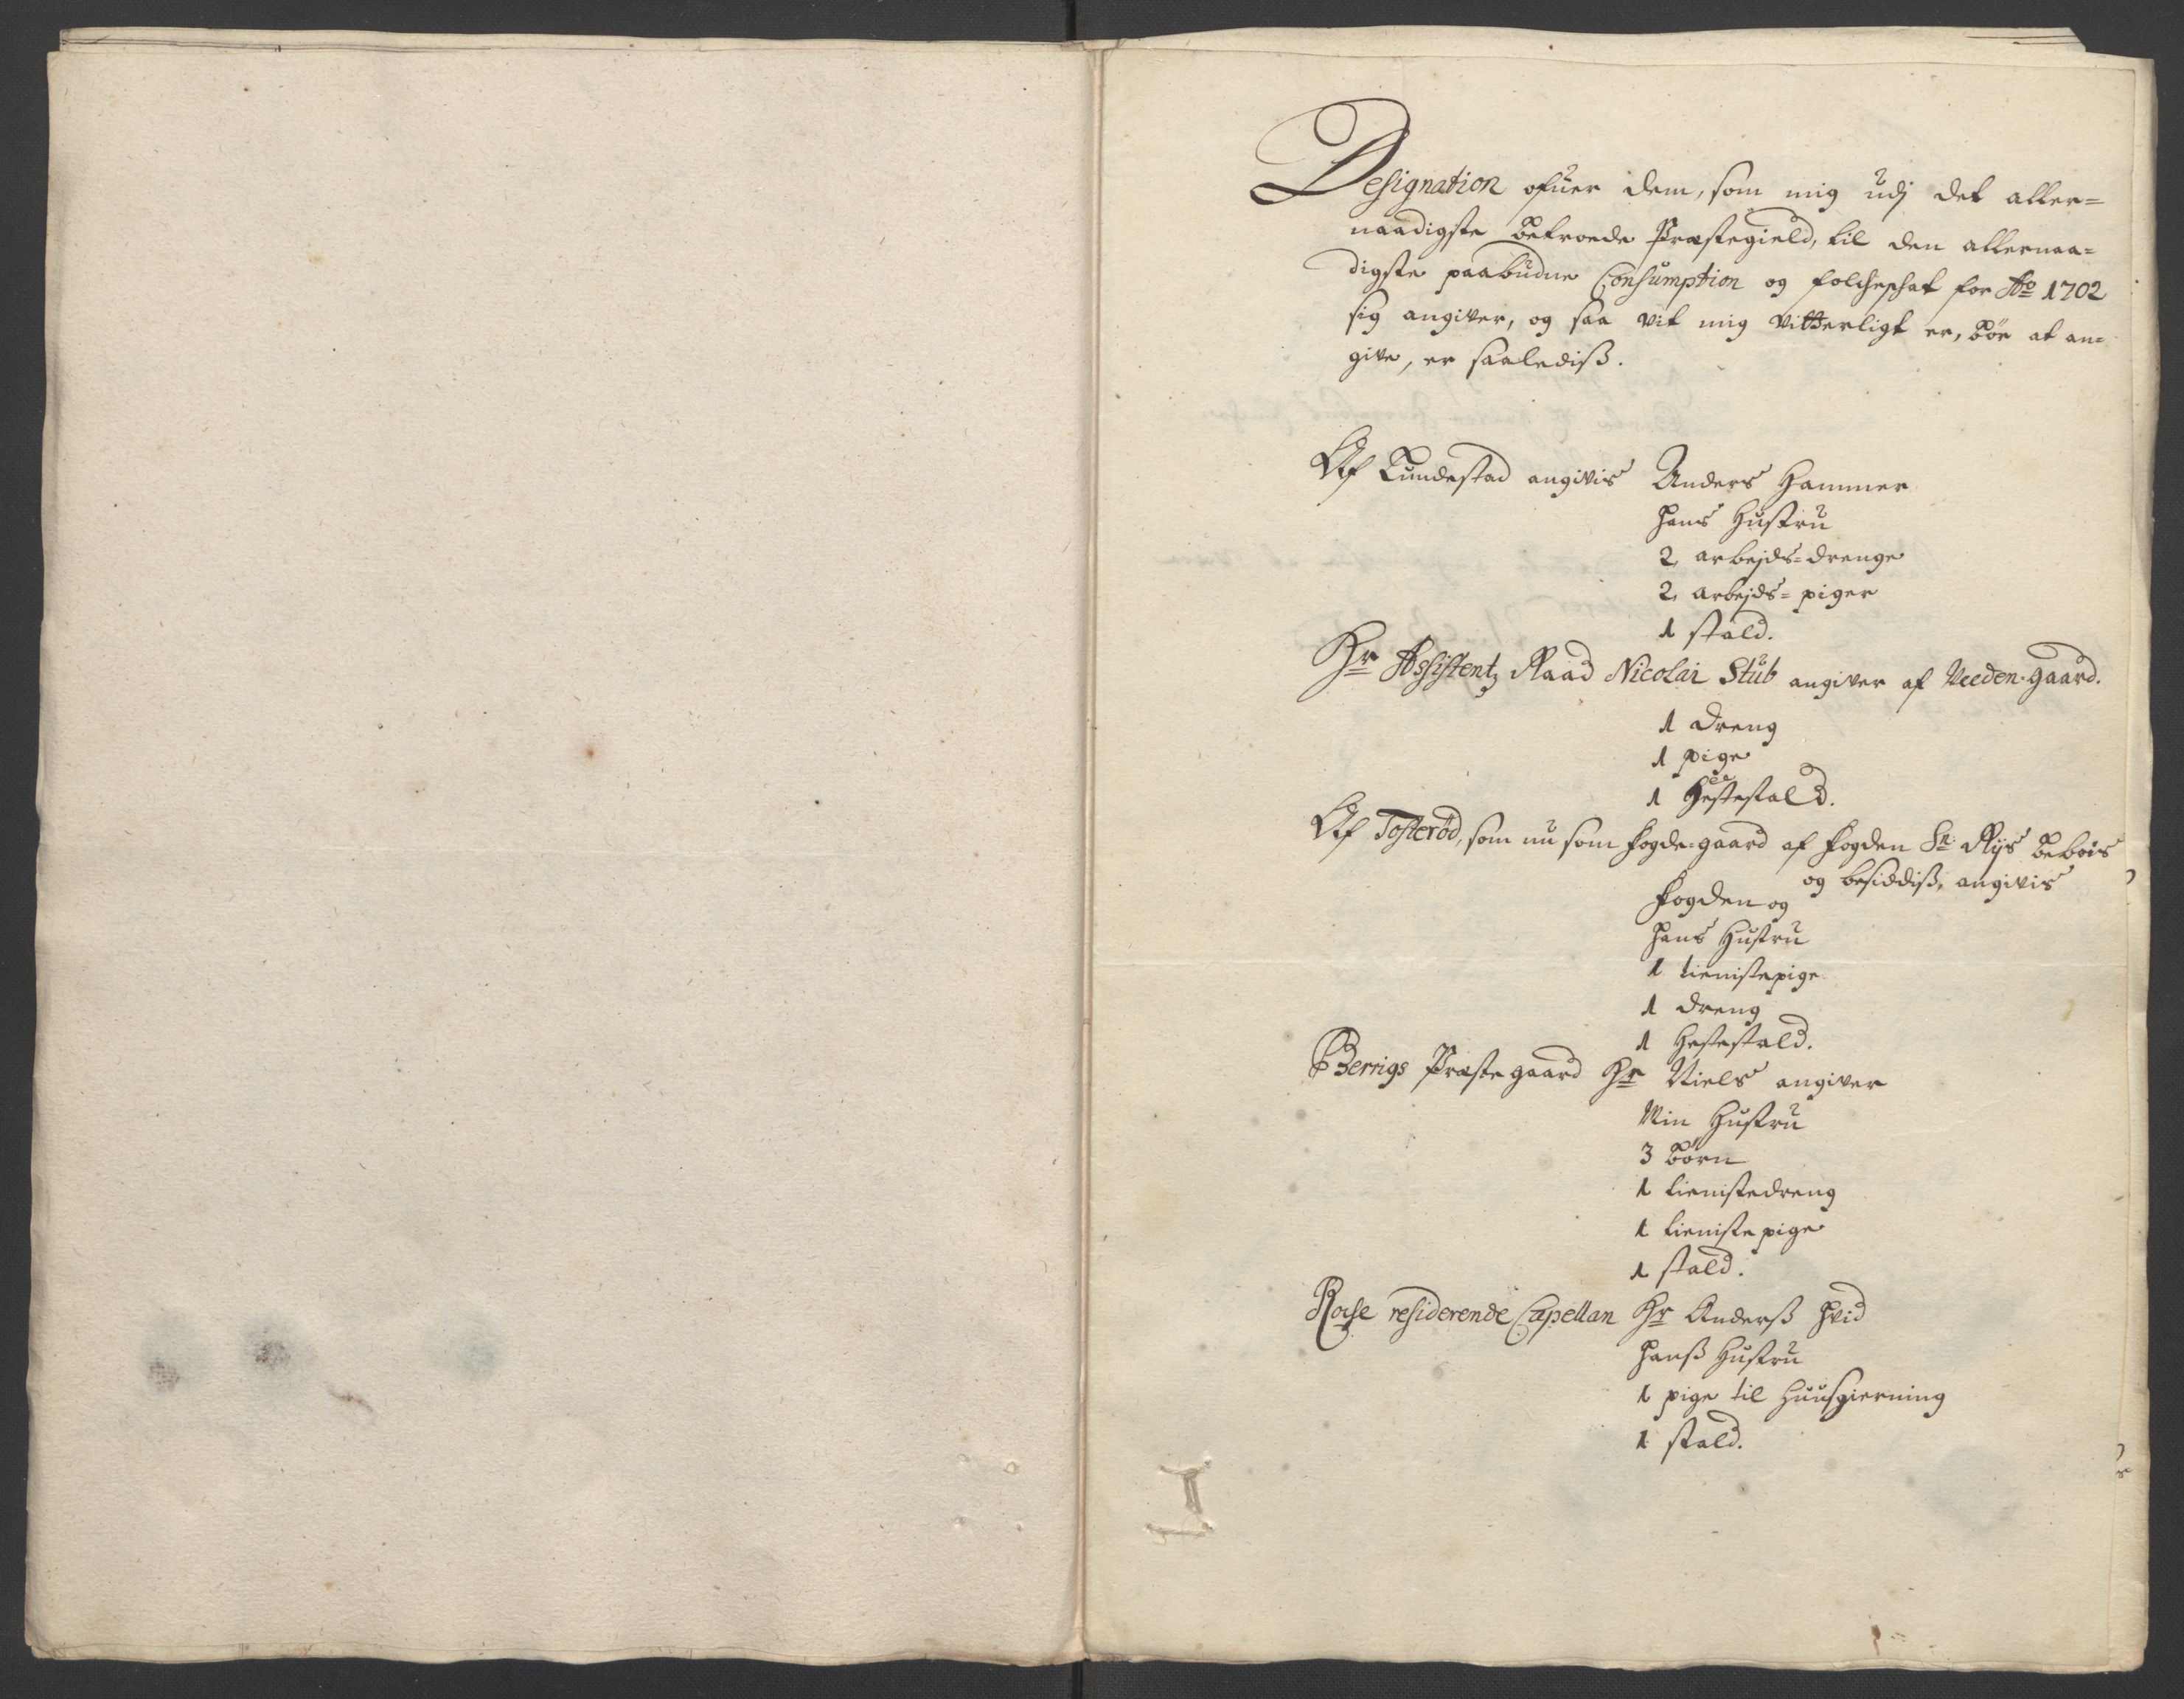 Designation ofuer dem, som mig udj det aller=
naadigste betroede Præstegield, til den allernaa=
digste paabudne Consumption og folcheschat for Ao 1702
sig angiver, og saa vit mig vitterligt er, bör at an=
give, er saalediß.
Af Tundestad angivis Anders Hammer
hans Hustru
2 arbejds=drenge
2 arbejds=piger
1 stald.
Hr Assistentz Raad Nicolai Stub angiver af Veeden-gaard.
1 dreng
1 pige
1 Hestestald.
Af Tosterød, som nu som fogde=gaard af fogden Sr. Rijs beboes
og besiddiß, angivis
fogden og
hans Hustru
1 tienistepige
1 dreng
1 Hestestald.
Berrigs Præstegaard Hr Niels angiver
Min Hustru
3 börn
1 tienistedreng
1 tienistepige
1 stald.
residerende Capellan Hr Anderß Hvid
hanß Hustru
1 pige til Huusgierning
1 stald.